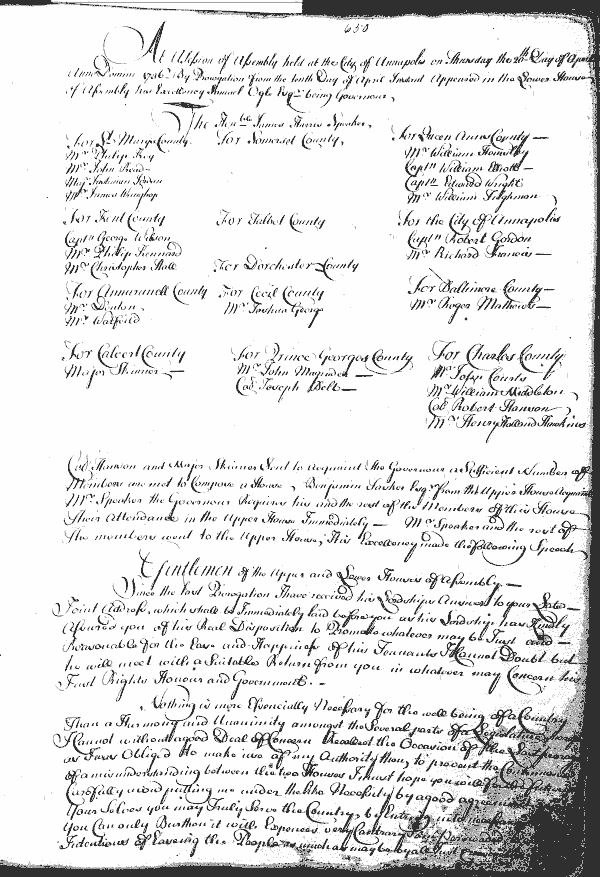 650
At a Session of Assembly held at the City of Annapolis on Thursday the 20th Day of April
Anno Domini 1736 By Prorogation from the tenth Day of April Instant Appeared in the Lower House
of Assembly his Excellency Samuel Ogle Esqr being Governour
The Honble James Harris Speaker,
For St Marys County
Mr Philip Key
Mr John Read
Majr
Mr
For Somerset County,
For Queen Anns County
Mr William
Captn William Elliott
Captn Edward Wright
Mr William Tilghman
For Kent County
Captn George Wilson
Mr Philip Kennard
Mr Christopher Hall
For Talbot County
For Dorchester County
For the City of Annapolis
Captn Robert Gordon
Mr Richard Francis
For Annarunell County
Mr Denton
Mr Warfield
For Cecil County
Mr Joshua George
For Baltimore County
Mr Roger Mathews
For Calvert County
Major Skinner
For Prince Georges County
Mr John Magruder
Col Joseph Belt
For Charles County
Mr John Courts
Mr William Middleton
Col Robert Hanson
Mr Henry Holland Hawkins
Col Hanson and Major Skinner Sent to acquaint the Governour a Sufficient Number of
Members are met to Compose a House, Benjamin Tasker Esqr from the Upper House Acquaints
Mr Speaker the Governour Requires his and the rest of the Members of this House
their Attendance in the Upper House Immediately Mr Speaker and the rest of
the members went to the Upper House, His Excellency made the following Speech
Gentlemen of the Upper and Lower Houses of Assembly
Since the last Prorogation I have received his Lordships Answer to your Late
Joint Address, which shall be Immediately laid before you as his Lordship has kindly
Assured you of his Real Disposition to Promote whatever may be Just and
Reasonable for the Ease and Happiness of his Tenants I Cannot Doubt but
he will meet with a Suitable Return from you in whatever may Concern his
Just Rights Honour and Government.
Nothing is more Essencially Necessary for the well being of a Country
Than a Harmony and Unanimity amongst the Several parts of a Legislature
I Cannot without a good Deal of Concern Recollect the Occasion of the Last
as I was Obliged to make use of my Authority then, to prevent the Continuance
of a misunderstanding between the two Houses I must hope you will for the future
Carefully avoid putting me under the like Necessity by a good agreement
Your Selves you may Truly Serve the Country, by Entering into
You can only Burthen it with Expences very Contrary to
Intentions of Easeing the People as much as may be